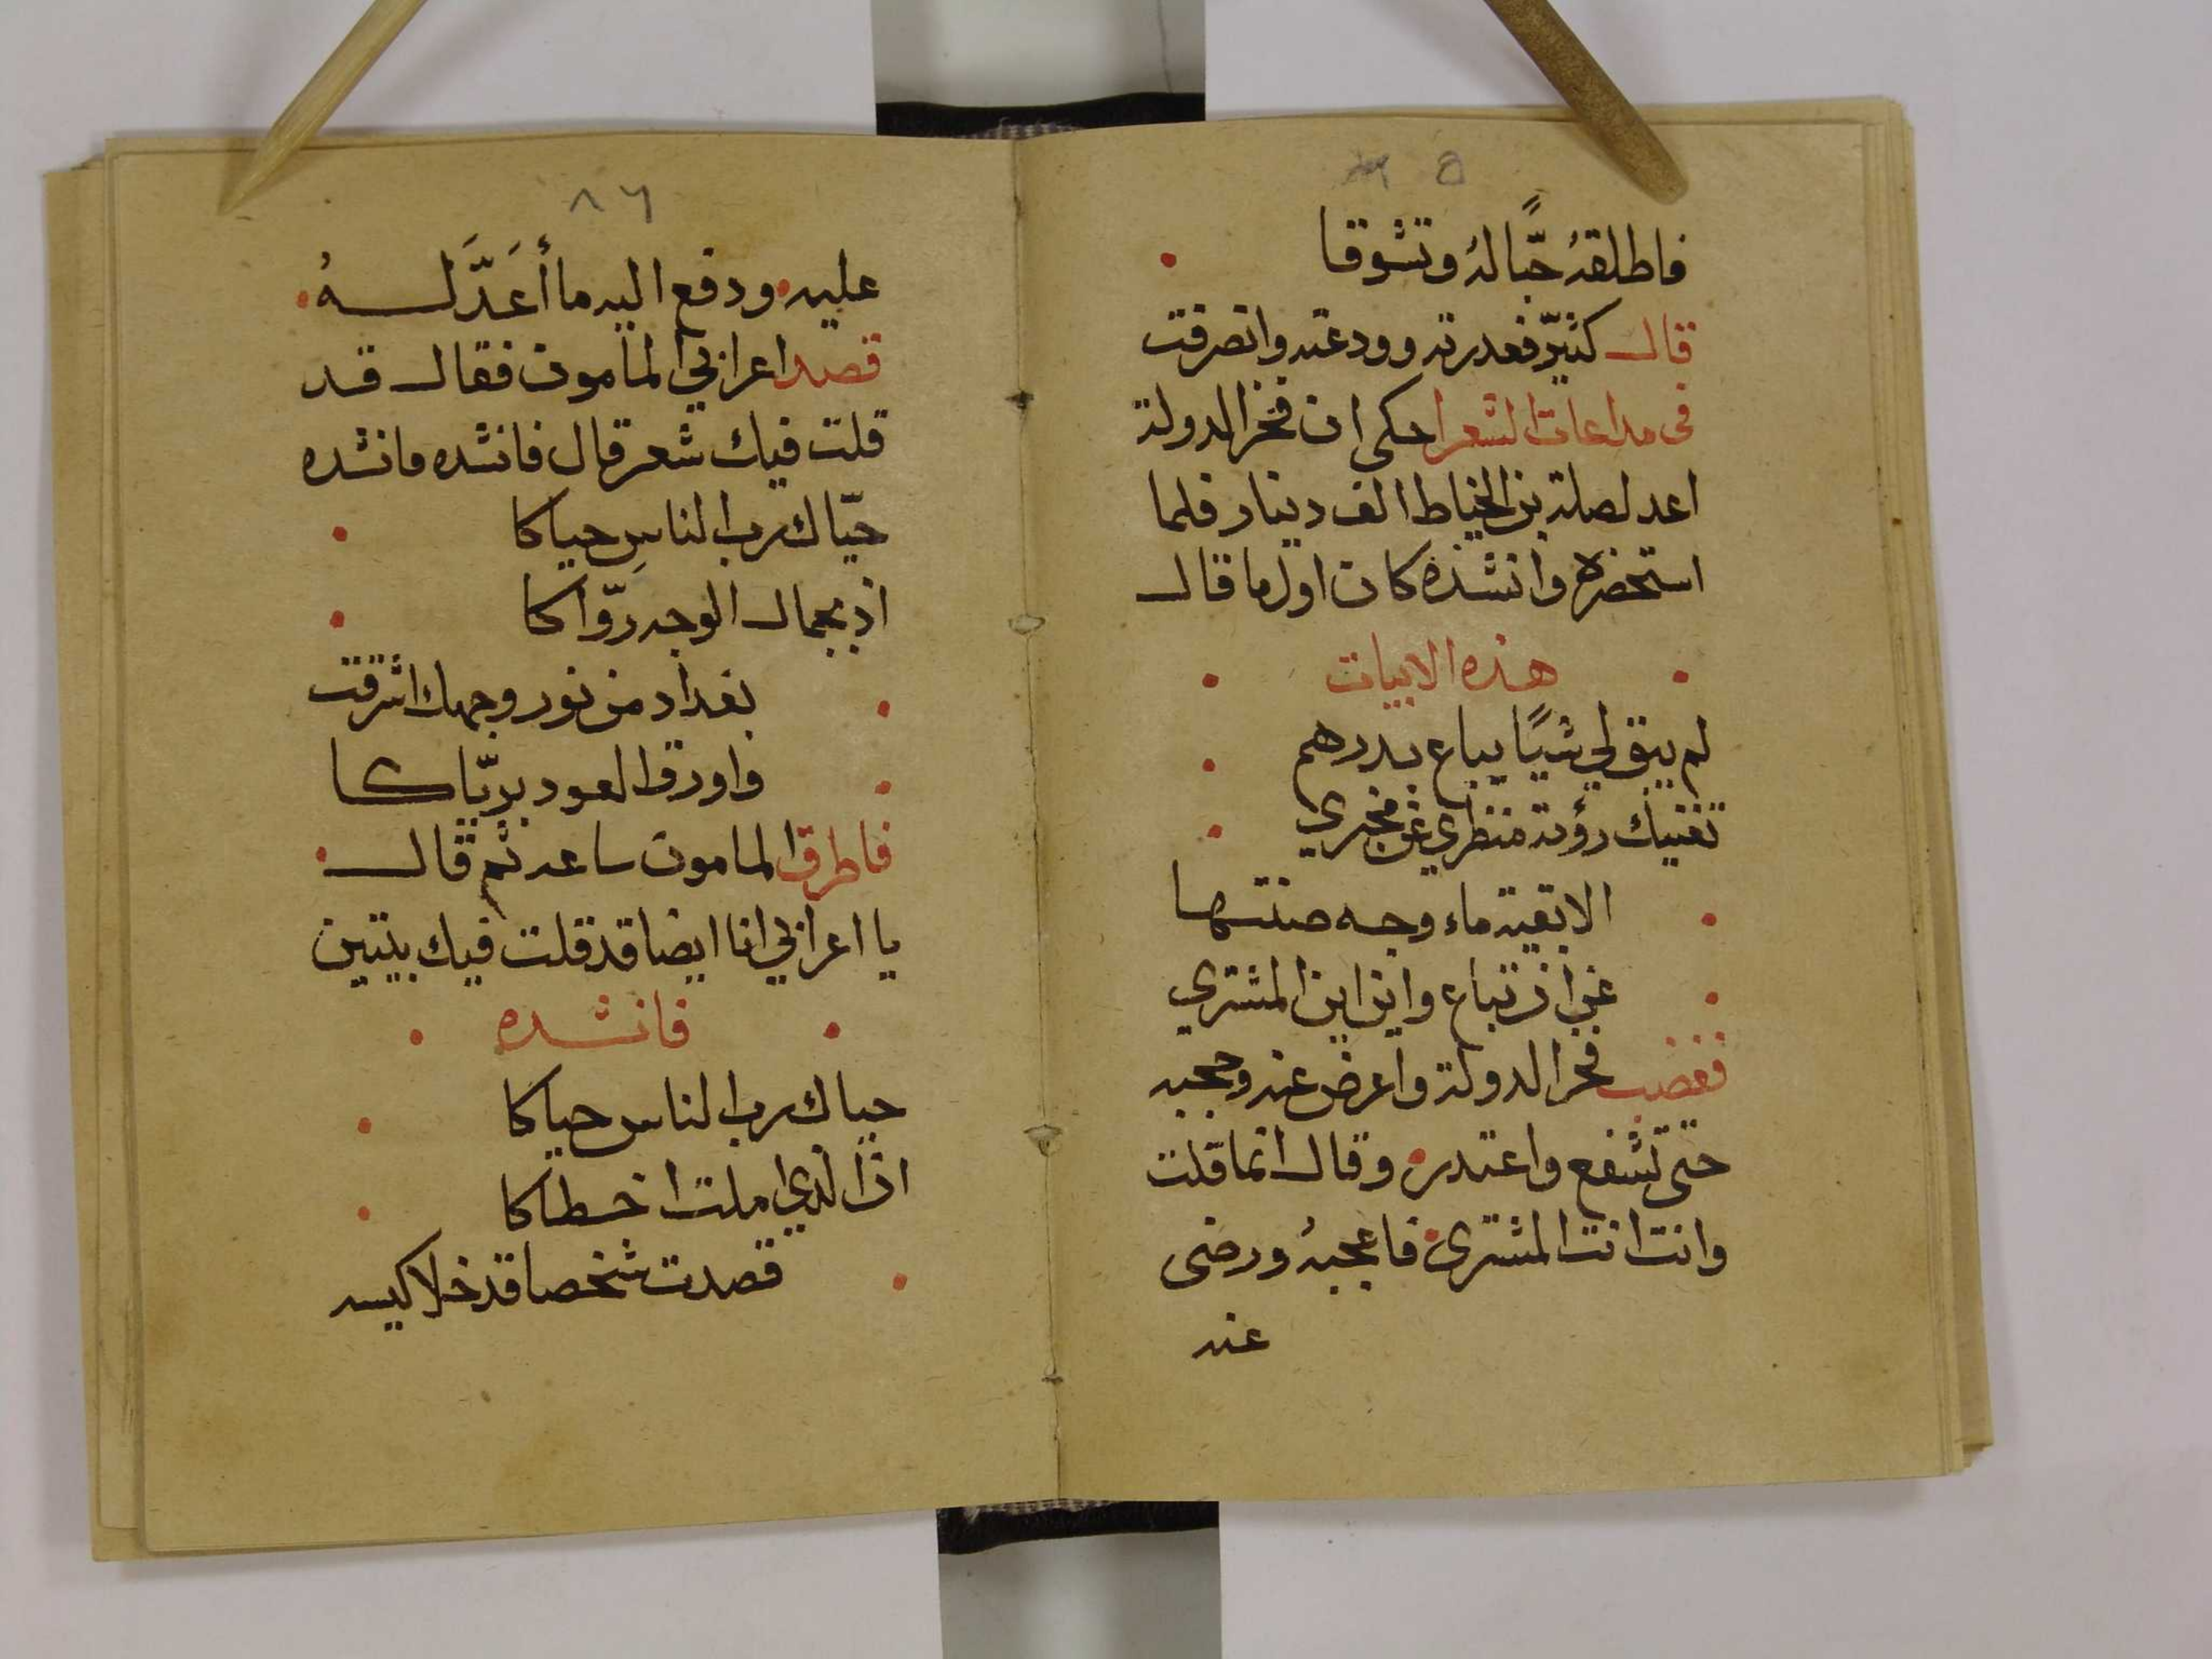 ٥
فاطلقهُ حبًّا لهُ وتشوقا
قال كثيّر فعدرته وودعته وانصرفت
فى مداعات الشعرا حكى ان فخر الدولة
اعد لصلة بن الخياط الف دينار فلما
استحضره وانشده كان اول ما قال
هذه الابيات
لم يبق لي شيًا يباع بدرهم
تغنيك رؤية منظري عن مخبري
الا بقية ماء وجه صنتها
عن ان تباع واين اين المشتري
فغضب فخر الدولة واعرض عنه وحجبه
حتى تشفع واعتدر وقال انما قلت
وانت انت المشترى فاعجبهُ ورضى
عنه
٨٦
عليه ودفع اليه ما أعَدَّ لهُ
قصد اعرابي المامون فقال قد
قلت فيك شعر قال فانشده فانشده
حيّاك رب الناسِ حياكا
اذ بجمال الوجه ردّاكا
بغداد من نور وجهك اشرقت
واورق العود بريّاكا
فاطرق المامون ساعه ثم قال
يا اعرابي انا ايضا قد قلت فيك بيتين
فانشده
حياك رب الناس حياكا
ان الذي املت اخطاكا
قصدت شخصا قد خلا كيسه